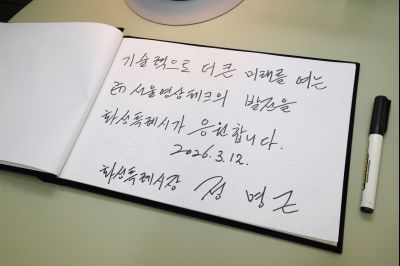 기술력으로 더 큰 미래를 여는
㈜ 서울영상테크의 발전을
화성특례시가 응원합니다.
2026. 3. 12.
화성특례시장 정 명 근